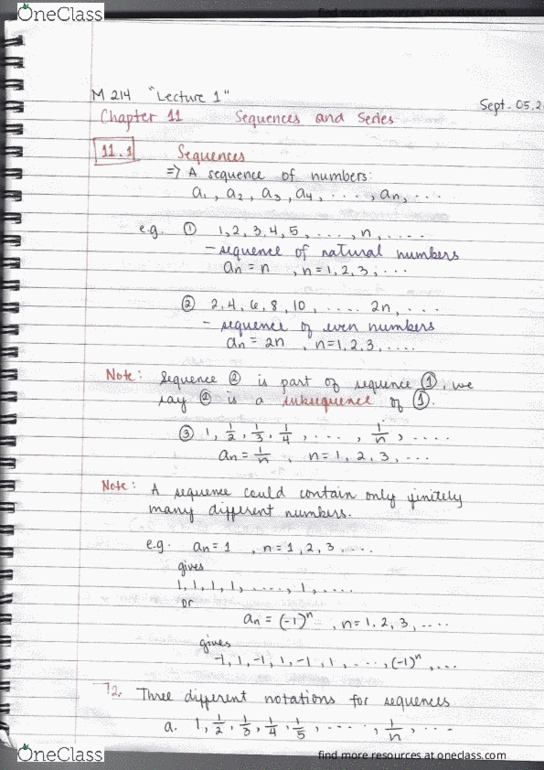 OneClass
find more resources at oneclass.com
M 214 "Lecture 1"
Sept. 05.2
Chapter 11 Sequences and Series
11.1 Sequences
⇒ A sequence of numbers:
a₁, a₂, a₃, a₄, ...., aₙ, ...
e.g. ① 1, 2, 3, 4, 5, ...., n, ....
- sequence of natural numbers
aₙ = n , n = 1, 2, 3, ...
② 2, 4, 6, 8, 10, ..... 2n, ...
- sequence of even numbers
aₙ = 2n , n = 1, 2, 3, ....
Note: Sequence ② is part of sequence ①, we
say ② is a subsequence of ①.
③ 1, 1/2, 1/3, 1/4, ...., 1/n, ....
aₙ = 1/n , n = 1, 2, 3, ...
Note: A sequence could contain only finitely
many different numbers.
e.g. aₙ = 1 , n = 1, 2, 3, ...
gives
1, 1, 1, 1, ....., 1, ....
or
aₙ = (-1)ⁿ , n = 1, 2, 3, ....
gives
-1, 1, -1, 1, -1, 1, ...., (-1)ⁿ, ...
2. Three different notations for sequences
a. 1, 1/2, 1/3, 1/4, 1/5, ....., 1/n, ...
OneClass
find more resources at oneclass.com